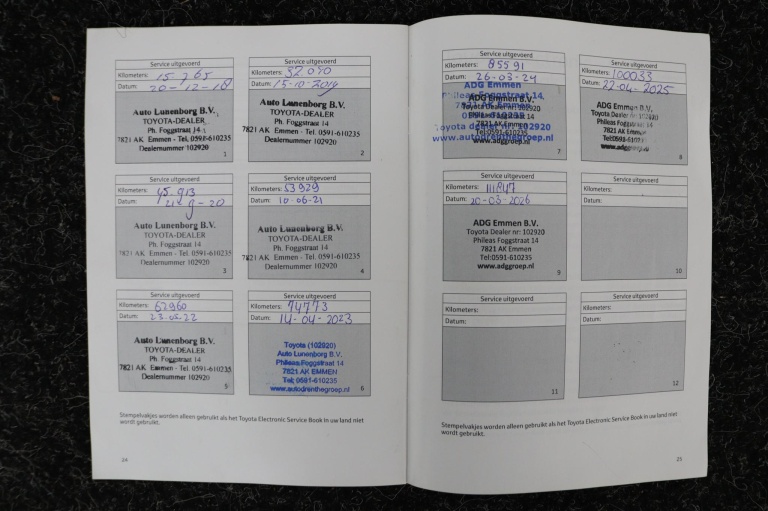 Service uitgevoerd
Kilometers: 15.765
Datum: 20-12-18
Auto Lunenborg B.V.
TOYOTA-DEALER
Ph. Foggstraat 14
7821 AK Emmen - Tel. 0591-610235
Dealernummer 102920
1
Service uitgevoerd
Kilometers: 32.090
Datum: 15-10-2019
Auto Lunenborg B.V.
TOYOTA-DEALER
Ph. Foggstraat 14
7821 AK Emmen - Tel. 0591-610235
Dealernummer 102920
2
Service uitgevoerd
Kilometers: 45.913
Datum: 21-9-20
Auto Lunenborg B.V.
TOYOTA-DEALER
Ph. Foggstraat 14
7821 AK Emmen - Tel. 0591-610235
Dealernummer 102920
3
Service uitgevoerd
Kilometers: 53929
Datum: 10-06-21
Auto Lunenborg B.V.
TOYOTA-DEALER
Ph. Foggstraat 14
7821 AK Emmen - Tel. 0591-610235
Dealernummer 102920
4
Service uitgevoerd
Kilometers: 62960
Datum: 23-02-22
Auto Lunenborg B.V.
TOYOTA-DEALER
Ph. Foggstraat 14
7821 AK Emmen - Tel. 0591-610235
Dealernummer 102920
5
Service uitgevoerd
Kilometers: 74773
Datum: 14-04-2023
Toyota (102920)
Auto Lunenborg B.V.
Phileas Foggstraat 14
7821 AK EMMEN
Tel: 0591-610235
www.autodrenthegroep.nl
6
Stempelvakjes worden alleen gebruikt als het Toyota Electronic Service Book in uw land niet
wordt gebruikt.
24
Service uitgevoerd
Kilometers: 85591
Datum: 26-03-24
ADG Emmen
Phileas Foggstraat 14,
7821 AK Emmen
0591-610235
Toyota dealer nr. 102920
www.autodrenthegroep.nl
ADG Emmen B.V.
Toyota Dealer nr: 102920
Phileas Foggstraat 14
7821 AK Emmen
Tel:0591-610235
www.adggroep.nl
7
Service uitgevoerd
Kilometers: 100033
Datum: 22-04-2025
ADG Emmen B.V.
Toyota Dealer nr: 102920
Phileas Foggstraat 14
7821 AK Emmen
Tel:0591-610235
www.adggroep.nl
8
Service uitgevoerd
Kilometers: 111847
Datum: 20-03-2026
ADG Emmen B.V.
Toyota Dealer nr: 102920
Phileas Foggstraat 14
7821 AK Emmen
Tel:0591-610235
www.adggroep.nl
9
Service uitgevoerd
Kilometers:
Datum:
10
Service uitgevoerd
Kilometers:
Datum:
11
Service uitgevoerd
Kilometers:
Datum:
12
Stempelvakjes worden alleen gebruikt als het Toyota Electronic Service Book in uw land niet
wordt gebruikt.
25